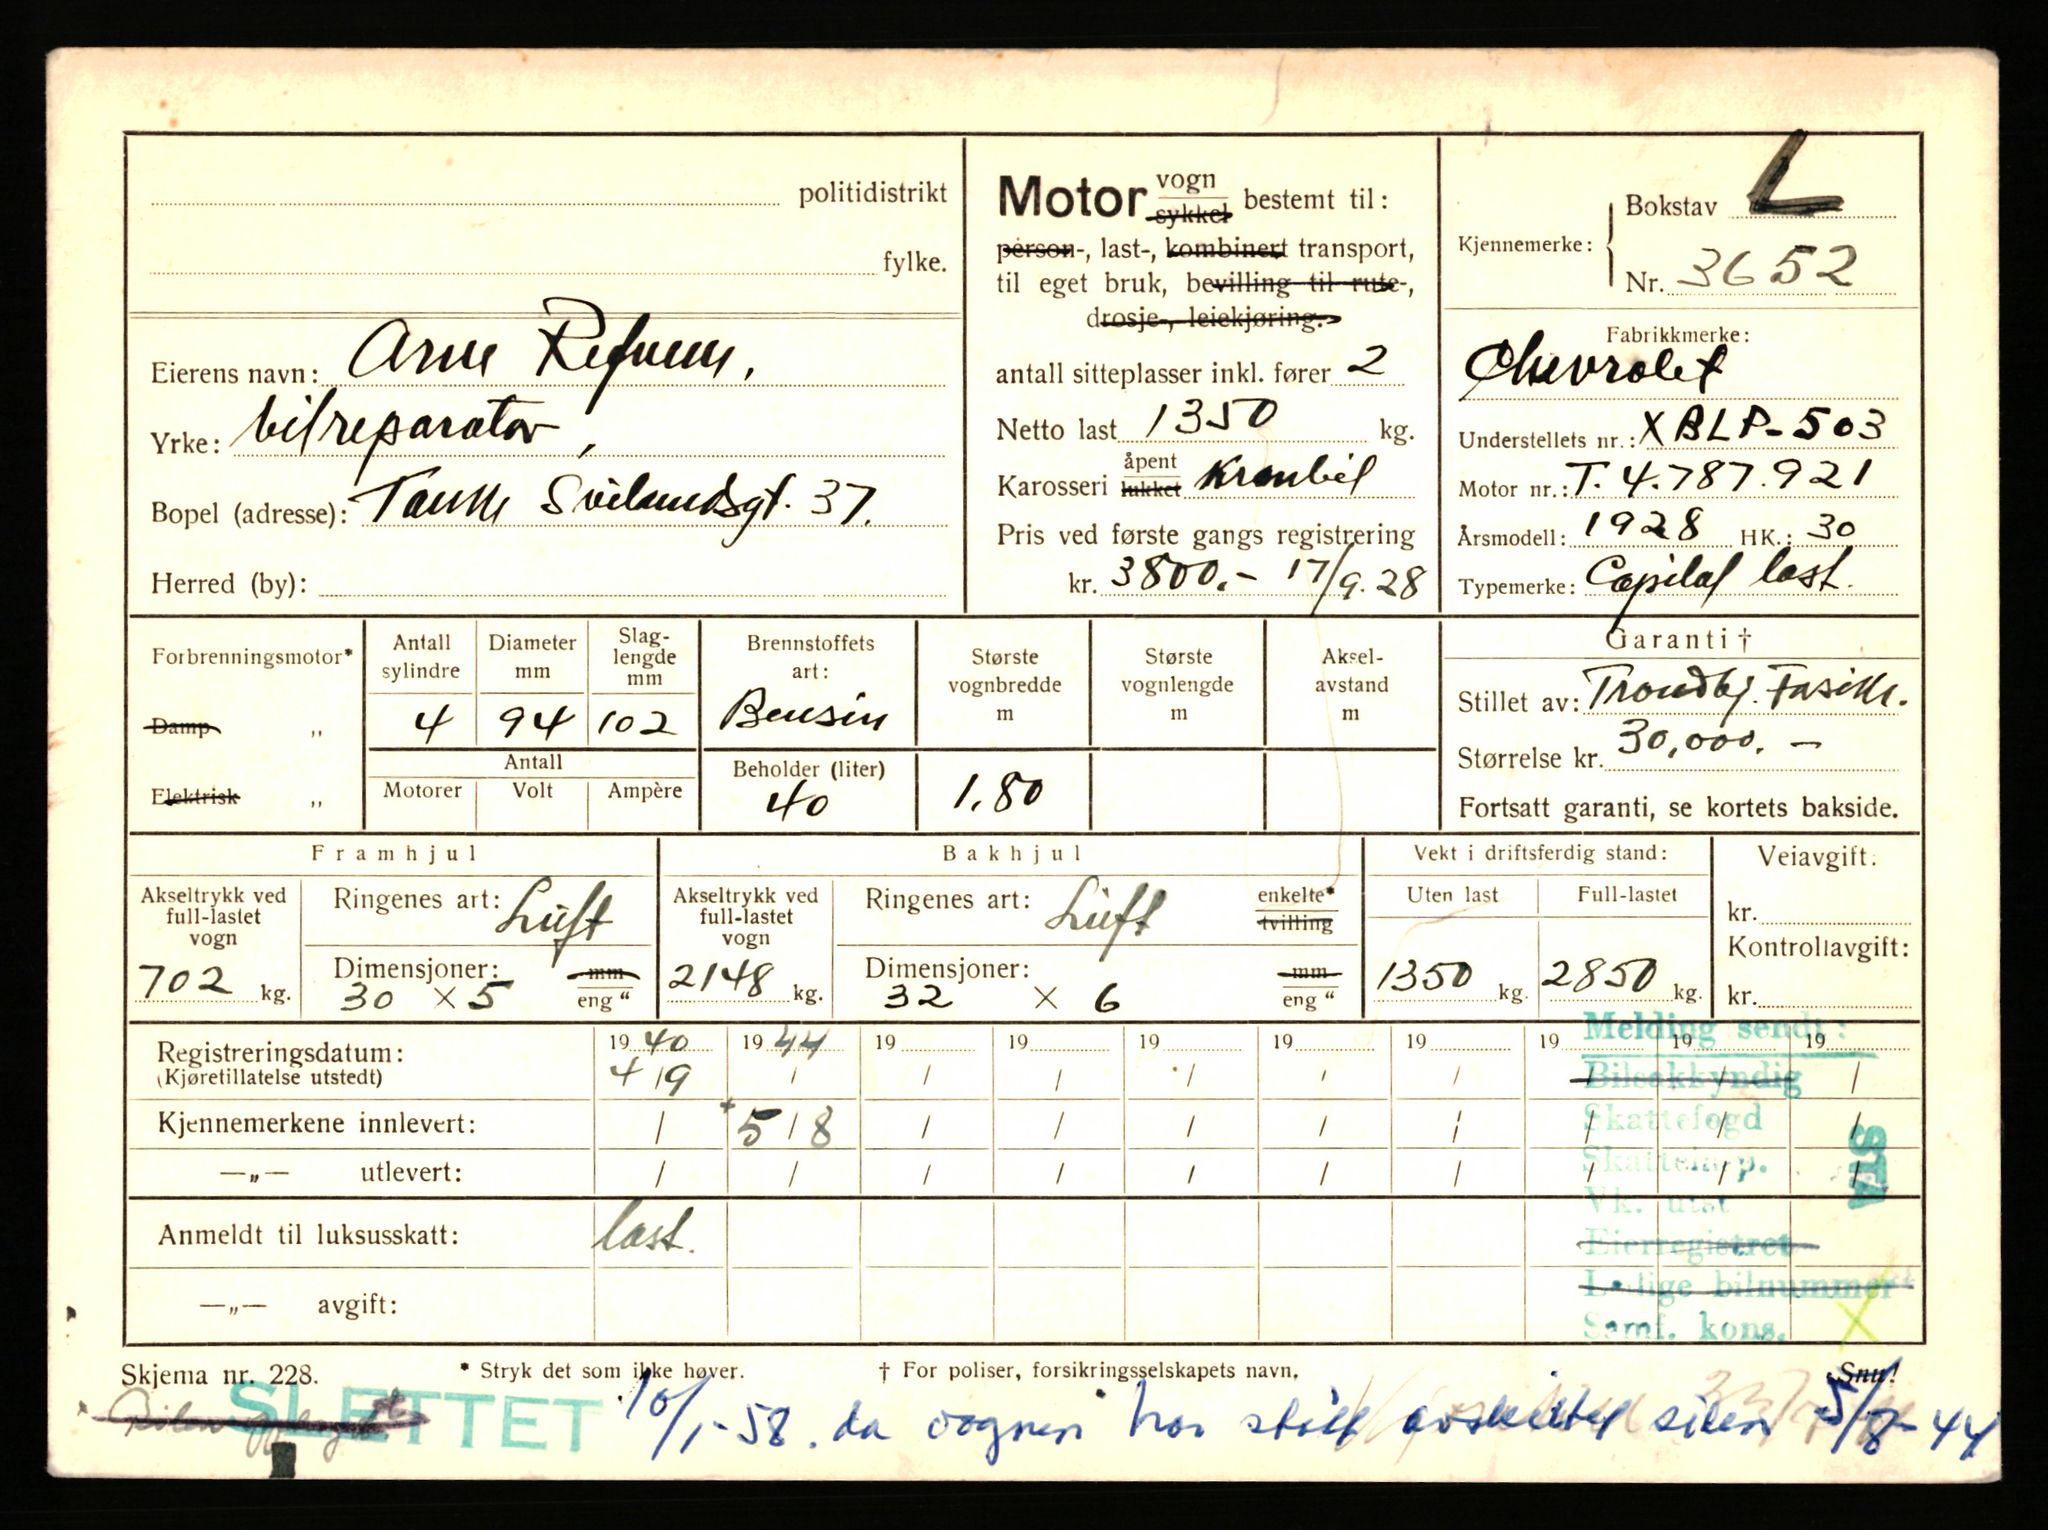 politidistrikt
fylke.
Eierens navn: Arne Refnem,
Yrke: bilreparatør,
Bopel (adresse): Tank Svilandsgt. 37.
Herred (by):
Motor vogn sykkel bestemt til:
person-, last-, kombinert transport,
til eget bruk, bevilling til rute-,
drosje-, leiekjøring.
antall sitteplasser inkl. fører 2
Netto last 1350 kg.
Karosseri åpent lukket Kranbil
Pris ved første gangs registrering
kr. 3800.- 17/9.28
Kjennemerke: Bokstav L
Nr. 3652
Fabrikkmerke:
Chevrolet
Understellets nr.: XBLP-503
Motor nr.: T.4.787.921
Årsmodell: 1928 HK.: 30
Typemerke: Capital last.
Forbrenningsmotor*
Damp „
Elektrisk „
Antall sylindre
4
Diameter mm
94
Slag-
lengde
mm
102
Antall
Motorer Volt Ampère
Brennstoffets
art:
Bensin
Beholder (liter)
40
Største
vognbredde
m
1.80
Største
vognlengde
m
Aksel-
avstand
m
Garanti †
Stillet av: Trondhj.
Størrelse kr. 30,000.-
Fortsatt garanti, se kortets bakside.
Framhjul
Akseltrykk ved
full-lastet
vogn
702 kg.
Ringenes art: Luft
Dimensjoner: mm
30 × 5 eng “
Bakhjul
Akseltrykk ved
full-lastet
vogn
2148 kg.
Ringenes art: Luft enkelte* tvilling
Dimensjoner: mm
32 × 6 eng “
Vekt i driftsferdig stand:
Uten last Full-lastet
1350 kg. 2850 kg.
Veiavgift:
kr.
Kontrollavgift:
kr.
Registreringsdatum: 1940 1944 19 19 19 19 19 19 19 19
(Kjøretillatelse utstedt) 4/9 / / / / / / / / /
Kjennemerkene innlevert: / 5/8 / / / / / / / /
—„— utlevert: / / / / / / / / / /
Anmeldt til luksusskatt: last.
—„— avgift:
Melding sendt:
Bilsakkyndig
Skattefogd
Skatteinsp.
Vk. utst
Eierregistret
Ledige bilnummer
Samf. kons.
STA
Skjema nr. 228. * Stryk det som ikke høver. † For poliser, forsikringsselskapets navn. Snu!
SLETTET 10/1-58. da vognen har stått avskiltet siden 5/8-44